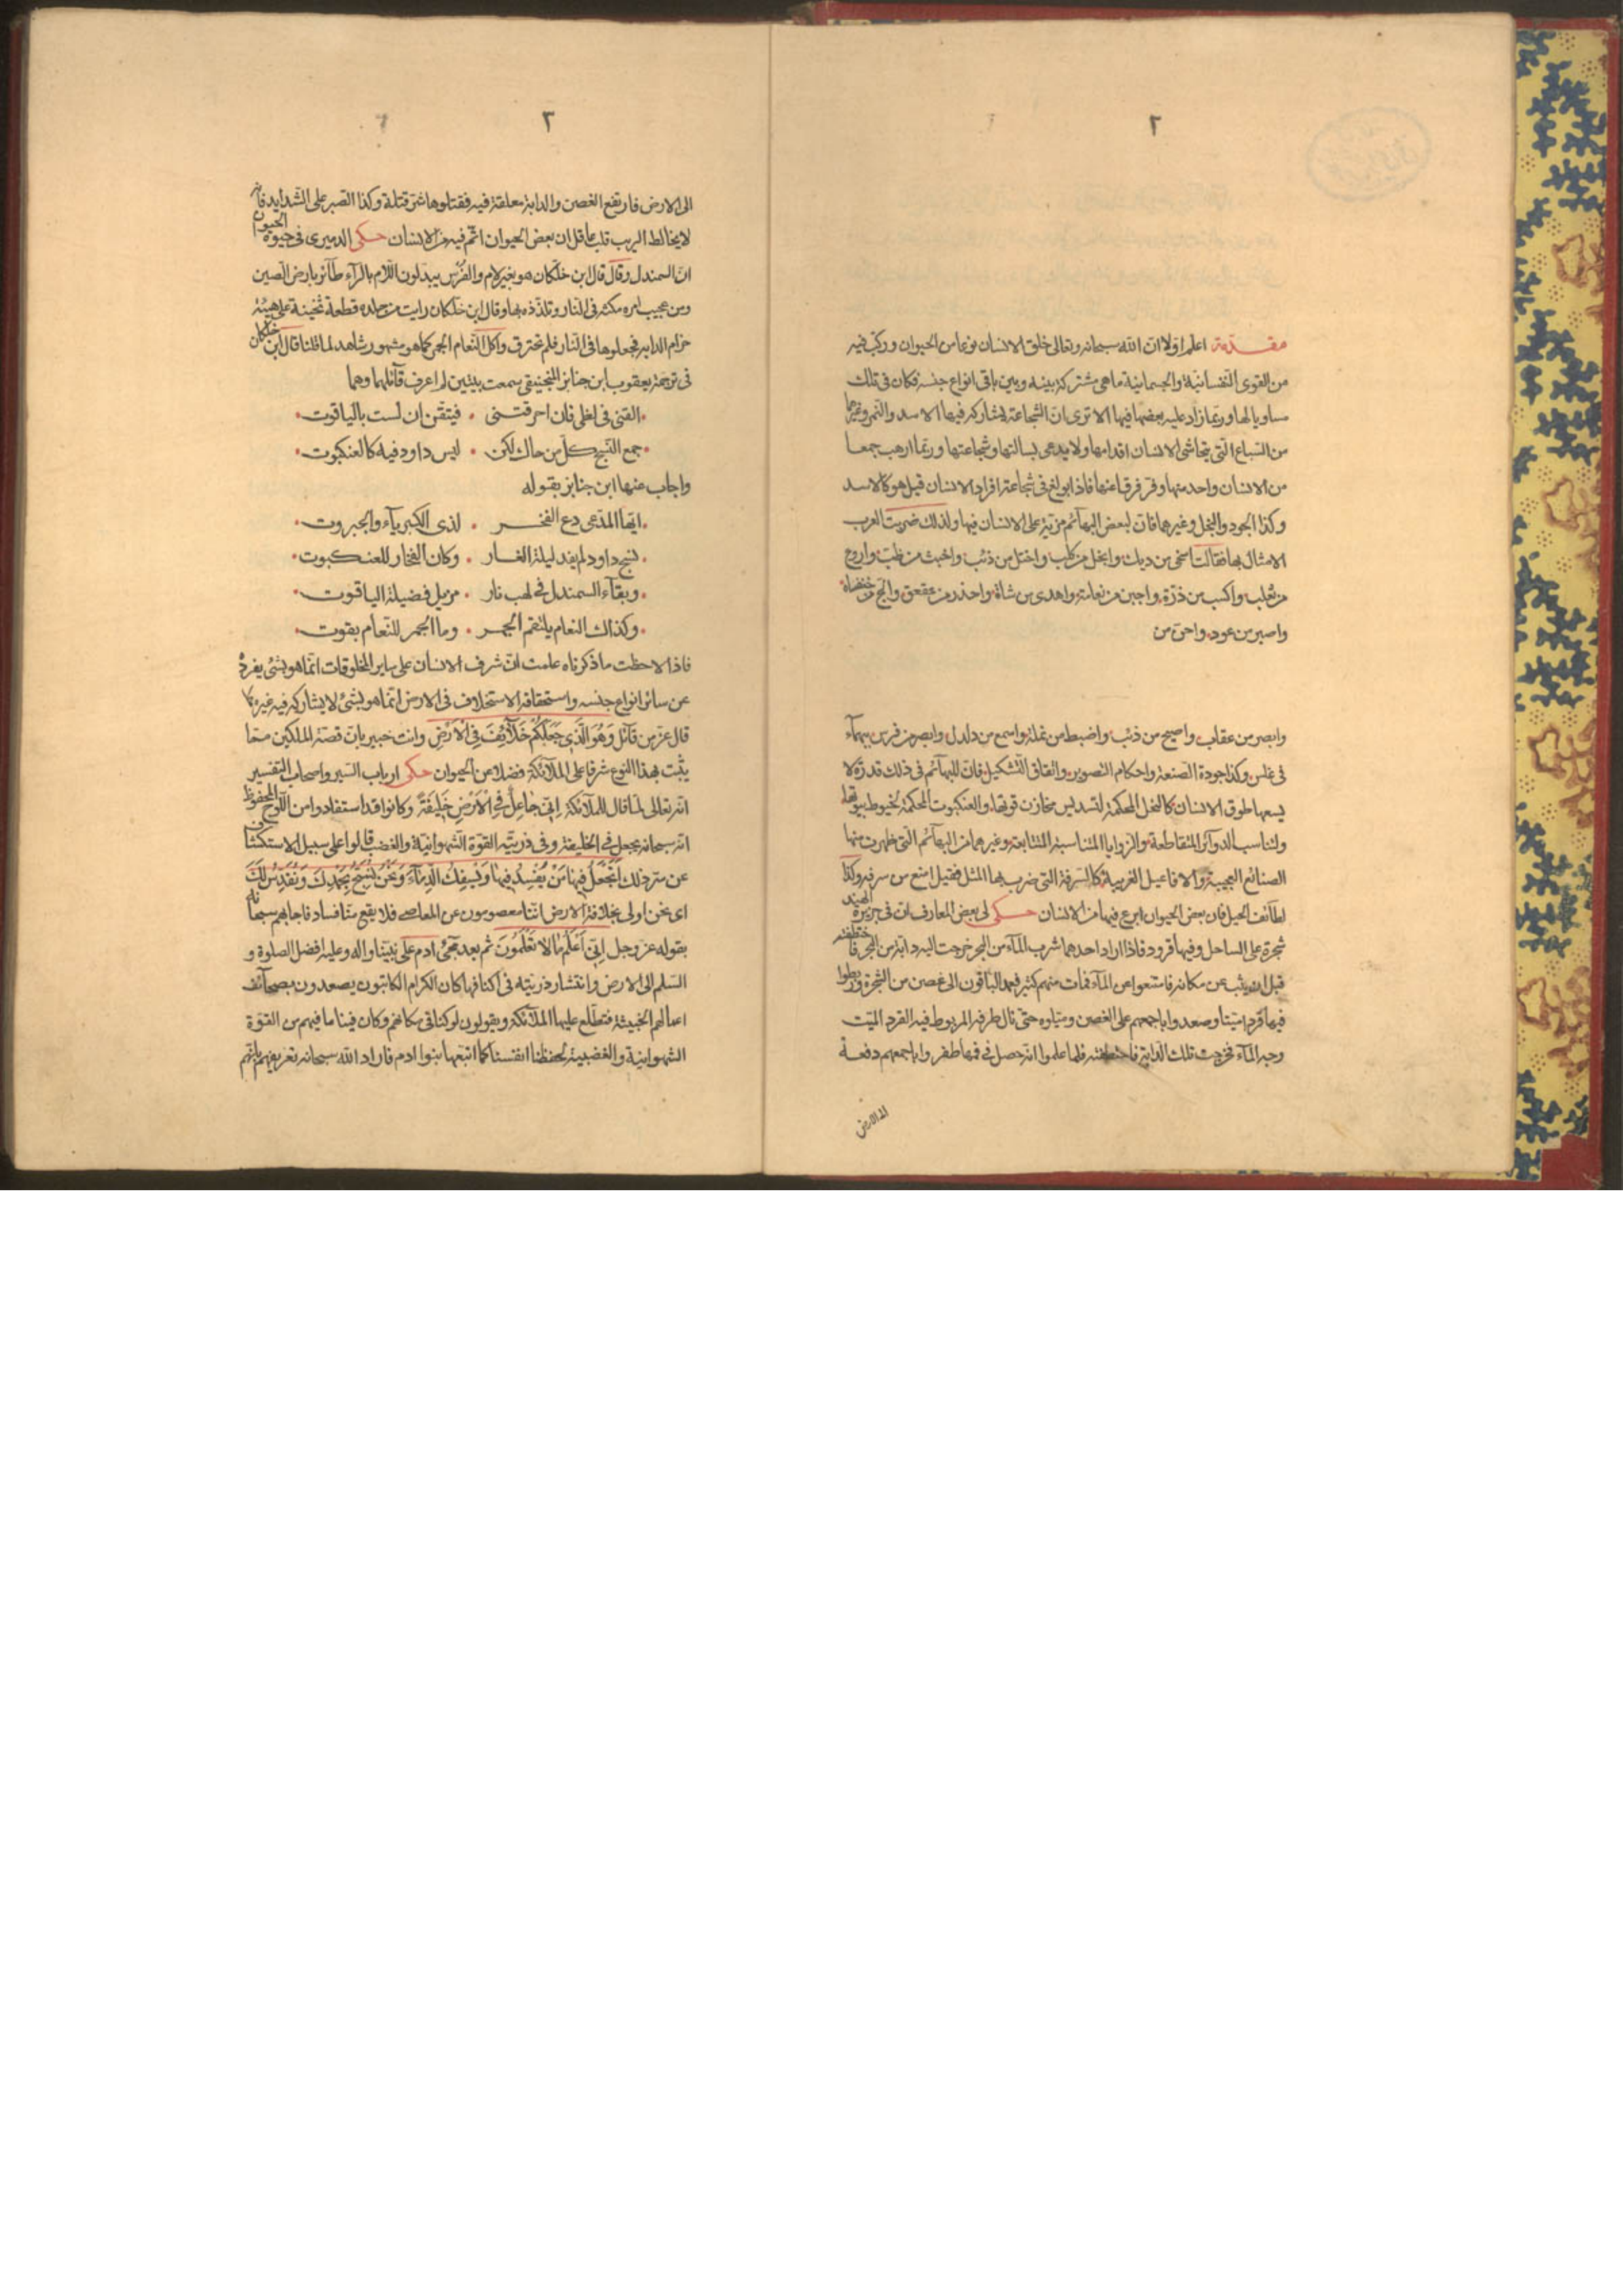 ٢
مقدمة اعلم اولا ان الله سبحانه وتعالى خلق الانسان نوعا من الحيوان وركب فيه
من القوى النفسانية والجسمانية ما هى مشتركة بينه وبين باقى انواع جنسه فكان فى تلك
مساويا لها وربما زاد عليه بعضها فيها الا ترى ان الشجاعة يشاركه فيها الاسد والنمر وغيرهما
من السباع التى يتحاشى الانسان اقدامها ولا يدعى بسالتها وشجاعتها وربما ارهب جمعا
من الانسان واحد منها وفر فرقا عنها فاذا بولغ فى شجاعة افراد الانسان قيل هو كالاسد
وكذا الجود والبخل وغيرهما فان لبعض البهائم مزية على الانسان فيها ولذلك ضربت العرب
الامثال بها فقالت اسخى من ديك وابخل من كلب واختل من ذئب واخبث من ضب واروغ
من ثعلب واكسب من ذرة واجبن من نعامة واهدى من شاة واحذر من عقعق والج من خنفساء
واصبر من عود واحن من
وابصر من عقاب واصبح من ذئب واضبط من نملة واسمع من دلدل وابصر من فرس بيهماء
فى غلس وكذا جودة الصنعة واحكام التصوير واتقان التشكيل فان للبهائم فى ذلك قدرة لا
يسعها طوق الانسان كالنحل المحكمة لتسديس مخازن قوتها والعنكبوت المحكمة لخيوط بيوتها
ولتناسب الدوائر المتقاطعة والزوايا المتناسبة المتتابعة وغيرهما من البهائم التى ظهرت منها
الصنائع العجيبة والافاعيل الغريبة كالسرفة التى ضرب بها المثل فقيل اصنع من سرفة وكذا
لطائف الحيل فان بعض الحيوان ابرع فيها من الانسان حكى لى بعض المعارف ان فى جزيرة الهند
شجرة على الساحل وفيها قرود فاذا اراد احدهما شرب الماء من البحر خرجت اليه دابة من البحر فاختطفته
قبل ان يثب عن مكانه فامتنعوا عن الماء فمات منهم كثير فعمد الباقون الى غصن من الشجرة وربطوا
فيها قردا ميتا وصعدوا باجمعهم على الغصن وميلوه حتى نال طرفه المربوط فيه القرد الميت
وجه الماء فخرجت تلك الدابة فاختطفته فلما علموا انه حصل فى فمها طفروا باجمعهم دفعة
الى الارض
٣
الى الارض فارتفع الغصن والدابة معلقة فيه فقتلوها شر قتلة وكذا الصبر على الشدايد فانه
لا يخالط الريب قلب عاقل ان بعض الحيوان اتم فيه من الانسان حكى الدميرى فى حيوة الحيوان
ان السمندل وقال قال ابن خلكان هو بغير لام والفرس يبدلون اللام بالراء طائر بارض الصين
ومن عجيب امره مكثه فى النار وتلذذه بها وقال ابن خلكان رايت من جلده قطعة ثخينة على هيئة
حزام الدابة فجعلوها فى النار فلم تحترق واكل النعام الجمر كما هو مشهور شاهد لما قلنا قال ابن خلكان
فى ترجمة يعقوب ابن جنابز المنجنيقى سمعت بيتين لم اعرف قائلهما وهما
القنى فى لظى فان احرقتنى . فتيقن ان لست بالياقوت
جمع النسج كل من حاك لكن . ليس داود فيه كالعنكبوت
واجاب عنها ابن جنابز بقوله
ايها المدعى دع الفخر . لذى الكبرياء والجبروت
نسج داود لم يفد ليلة الغار . وكان الفخار للعنكبوت
وبقاء السمندل فى لهب نار . مزيل فضيلة الياقوت
وكذاك النعام يلتقم الجمر . وما الجمر للنعام بقوت
فاذا لاحظت ما ذكرناه علمت ان شرف الانسان على ساير المخلوقات انما هو بشئ يفرد
عن سائر انواع جنسه واستحقاقه الاستخلاف فى الارض انما هو بشئ لا يشاركه فيه غيره كما
قال عز من قائل وَهُوَ الَّذِى جَعَلَكُمْ خَلَائِفَ فِى الْاَرْضِ وانت خبير بان قصة الملكين مما
يثبت بهذا النوع شرفا على الملائكة فضلا عن الحيوان حكى ارباب السير واصحاب التفسير
انه تعالى لما قال للملائكة اِنِّى جَاعِلٌ فِى الْاَرْضِ خَلِيفَةً وكانوا قد استفادوا من اللوح المحفوظ
انه سبحانه يجعل فى الخليفة وفى ذريته القوة الشهوانية والغضب قالوا على سبيل الاستكشاف
عن سر ذلك اَتَجْعَلُ فِيهَا مَنْ يُفْسِدُ فِيهَا وَيَسْفِكُ الدِّمَاءَ وَنَحْنُ نُسَبِّحُ بِحَمْدِكَ وَنُقَدِّسُ لَكَ
اى نحن اولى بخلافة الارض اننا معصومون عن المعاصى فلا يقع منا فساد فاجابهم سبحانه
بقوله عز وجل اِنِّى اَعْلَمُ مَا لَا تَعْلَمُونَ ثم بعد مجئ ادم على نبينا واله وعليه افضل الصلوة و
السلم الى الارض وانتشار ذريته فى اكنافها كان الكرام الكاتبون يصعدون بصحائف
اعمالهم الخبيثة فتطلع عليها الملائكة ويقولون لو كنا فى مكانهم وكان فينا ما فيهم من القوة
الشهوانية والغضبية لحفظنا انفسنا كما اتبعها بنوا ادم فاراد الله سبحانه تعريفهم بانهم